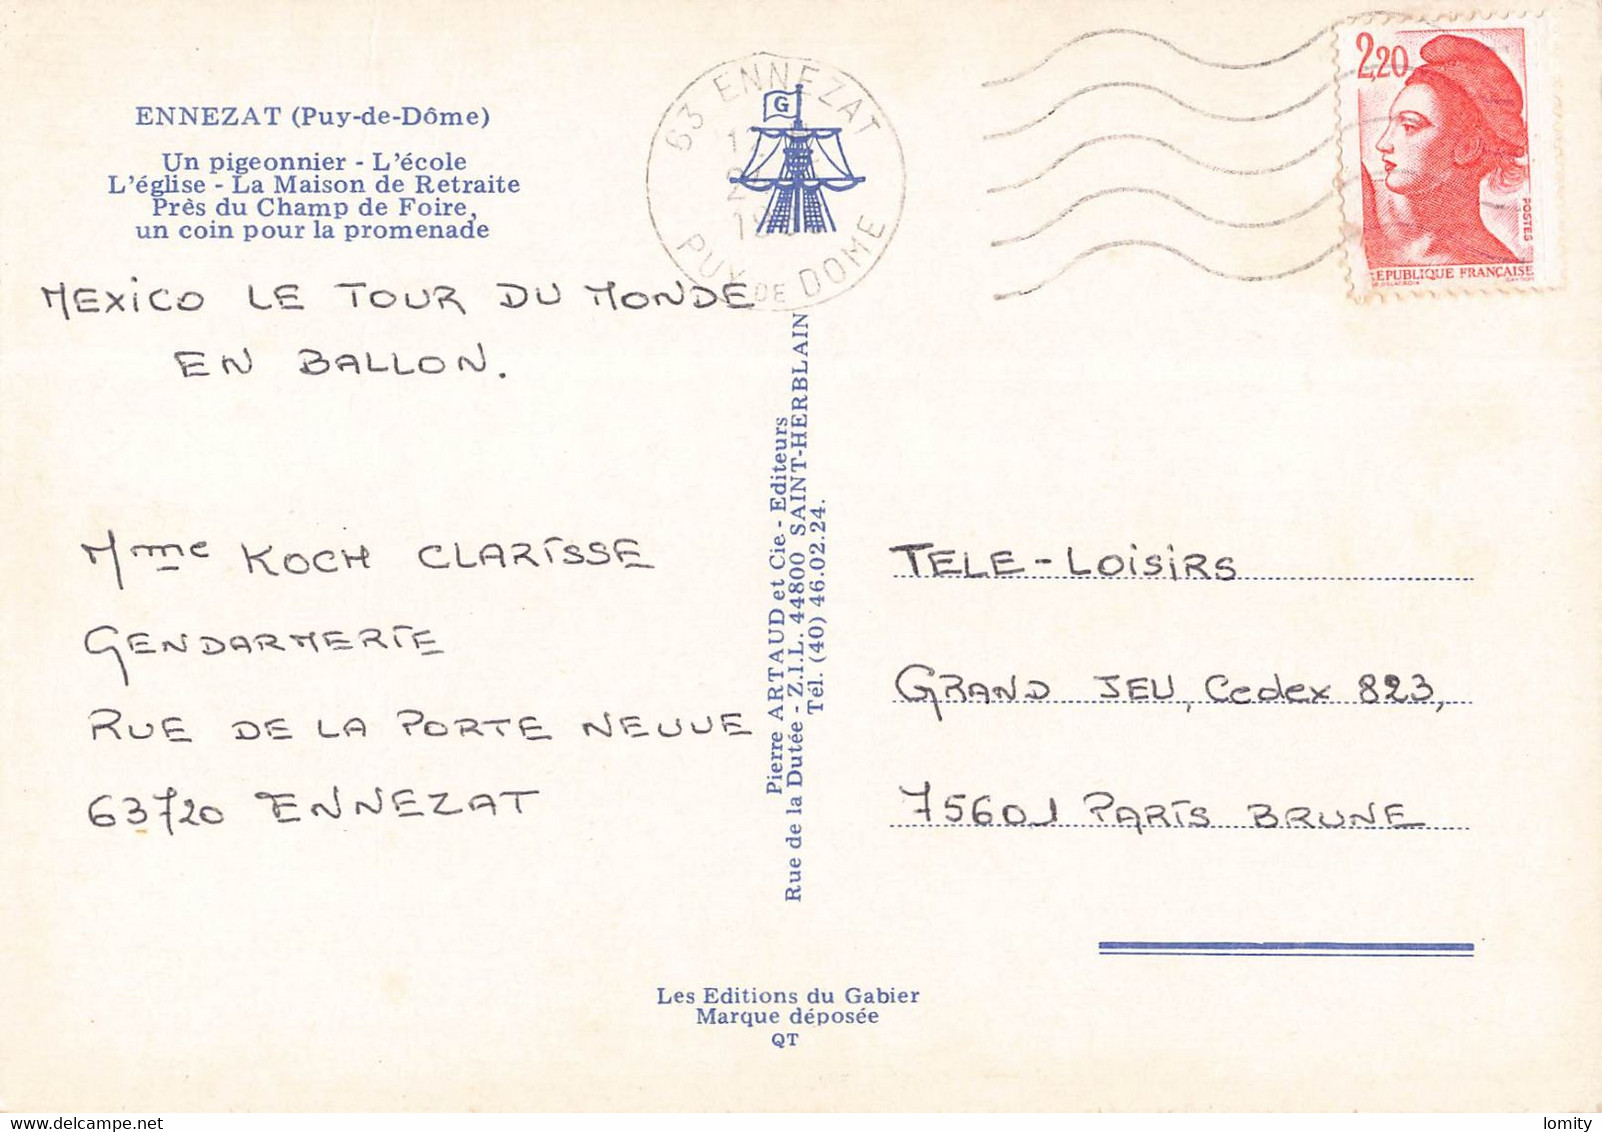 ENNEZAT (Puy-de-Dôme)
Un pigeonnier - L'école
L'église - La Maison de Retraite
Près du Champ de Foire,
un coin pour la promenade
MEXICO LE TOUR DU MONDE
EN BALLON.
Mme KOCH CLARISSE
GENDARMERIE
RUE DE LA PORTE NEUVE
63720 ENNEZAT
63 ENNEZAT
PUY DE DOME
G
Pierre ARTAUD et Cie - Editeurs
Rue de la Dutée - Z.I.L. 44800 SAINT-HERBLAIN
Tél. (40) 46.02.24.
2,20
POSTES
REPUBLIQUE FRANÇAISE
TELE-LOISIRS
GRAND JEU, Cedex 823,
75601 PARIS BRUNE
Les Editions du Gabier
Marque déposée
QT
delcampe.net
lomity